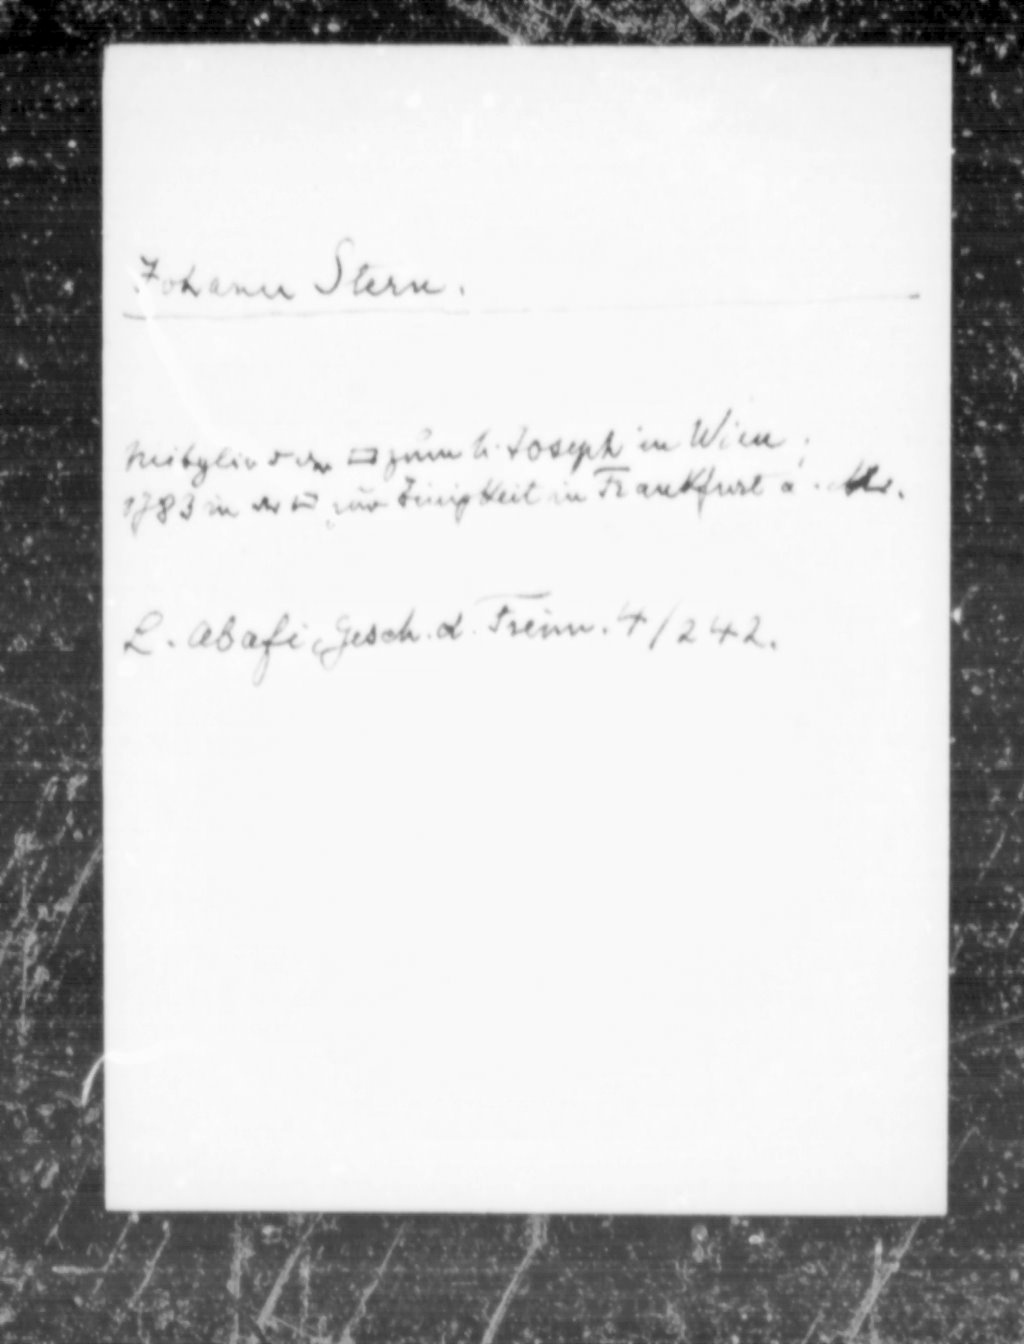 Johann Stern.
Mitglied der □ zum h. Joseph in Wien;
1783 in der □ zur Einigkeit in Frankfurt a. M.
L. Abafi, Gesch. d. Freim. 4/242.